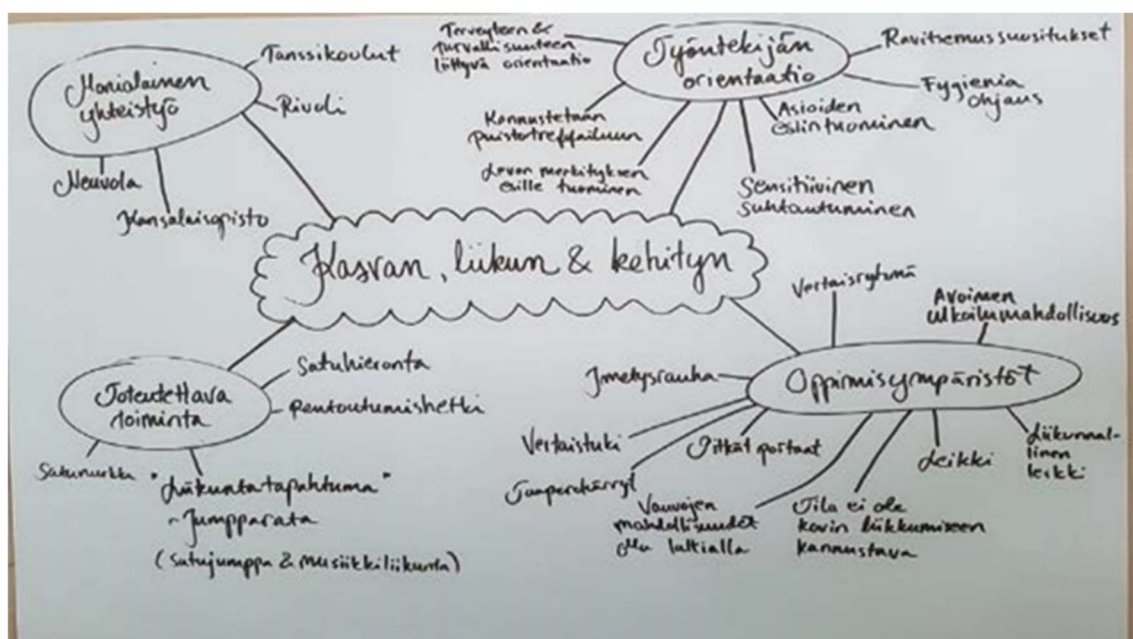 Monialainen
yhteistyö
Tanssikoulut
Rivoli
Neuvola
Kansalaisopisto
Työntekijän
orientaatio
Terveyteen &
turvallisuuteen
liittyvä orientaatio
Kannustetaan
puistotreffailuun
Levon merkityksen
esille tuominen
Ravitsemussuositukset
Fygienia
ohjaus
Asioiden
esiintuominen
Sensitiivinen
suhtautuminen
Kasvan, liikun & kehityn
Toteutettava
toiminta
Satuhieronta
Rentoutumishetki
Satunurkka
"Liikuntatapahtuma"
- Jumpparata
(satujumppa & musiikkiliikunta)
Oppimisympäristöt
Vertaisryhmä
Avoimen
ulkoilumahdollisuus
Imetysrauha
Vertaistuki
Pitkät portaat
Vauvojen
mahdollisuudet
olla lattialla
Tila ei ole
kovin liikkumiseen
kannustava
Leikki
Liikunnal-
linen
leikki